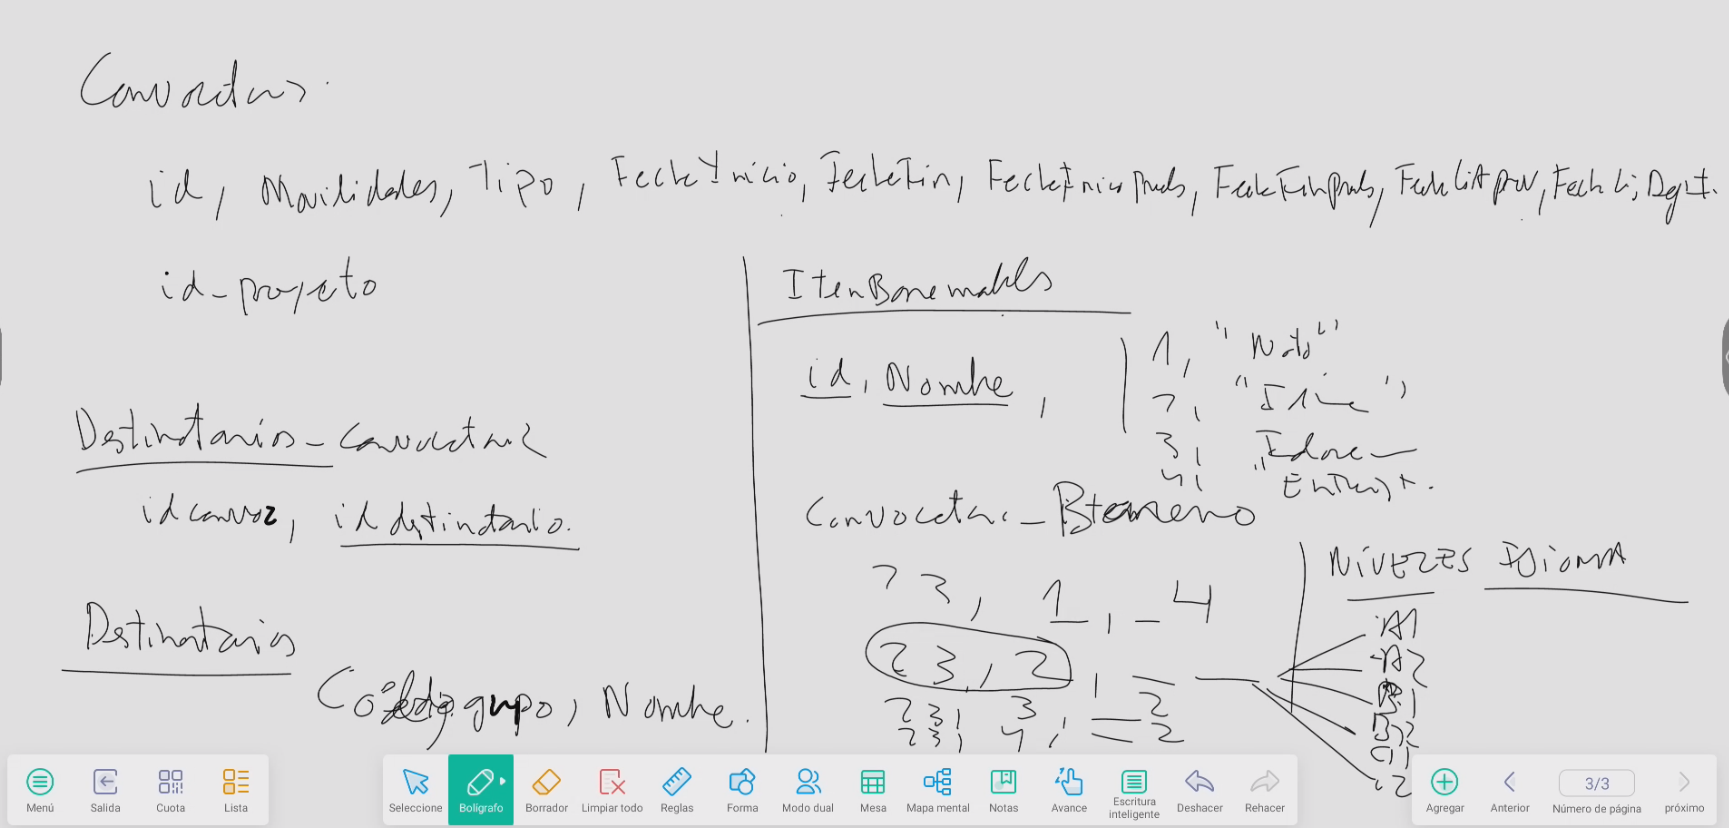 Convocatorias.
id, Movilidades, Tipo, FechaInicio, FechaFin, FechaInicioPruebas, FechaFinPruebas, FechaListProv, FechaLisDefinit.
id-proyecto
Destinatarios-convocatorias
idconvoz, iddestinatario.
Destinatarios
Código grupo, Nombre.
ItemBaremables
id, Nombre,
1, "Nota"
2,
3, "Idone
4, Entrevist.
Convocatoria-Baremo
23, 1, - 4
23, 2, -
23, 3, - 2
23, 4, - 2
NIVELES IDIOMA
A1
A2
B1
B2
C1
C2
Menú
Salida
Cuota
Lista
Seleccione
Bolígrafo
Borrador
Limpiar todo
Reglas
Forma
Modo dual
Mesa
Mapa mental
Notas
Avance
Escritura
inteligente
Deshacer
Rehacer
Agregar
Anterior
3/3
Número de página
próximo